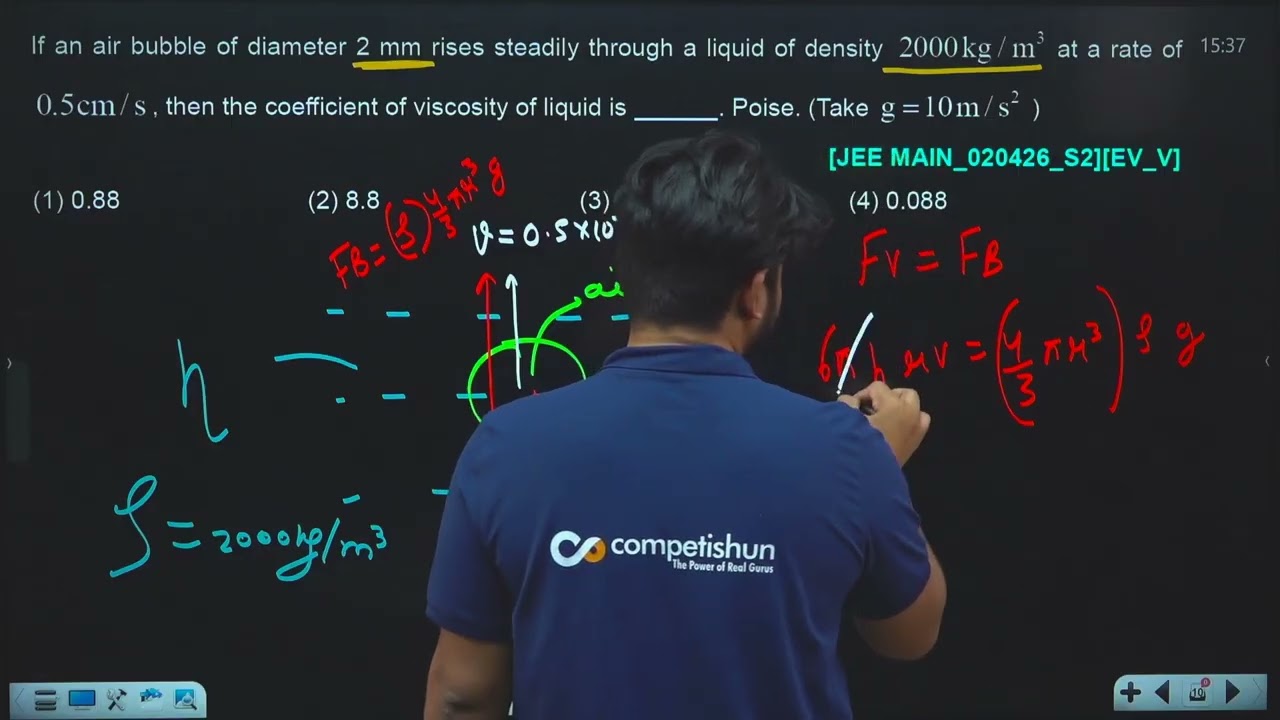 If an air bubble of diameter 2 mm rises steadily through a liquid of density 2000 kg/m³ at a rate of 15:37
0.5cm/s, then the coefficient of viscosity of liquid is ______. Poise. (Take g = 10 m/s² )
[JEE MAIN_020426_S2][EV_V]
(1) 0.88 (2) 8.8 (3) (4) 0.088
FB = (ρ) 4/3 πr³ g
v = 0.5×10
Fv = FB
air
η
6π η r v = (4/3 πr³) ρ g
ρ = 2000kg/m³
competishun
The Power of Real Gurus
19